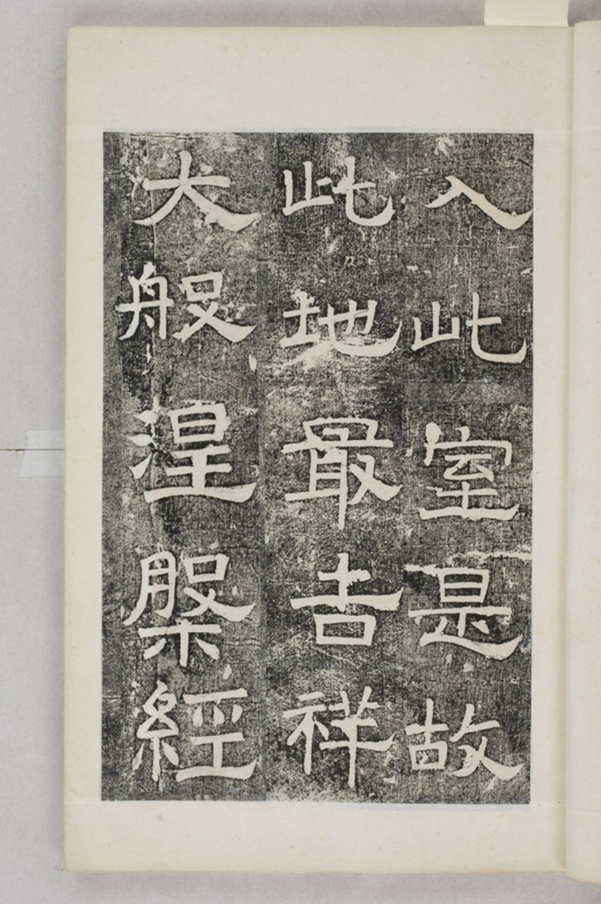 入此室是故
此地最吉祥
大般涅槃經